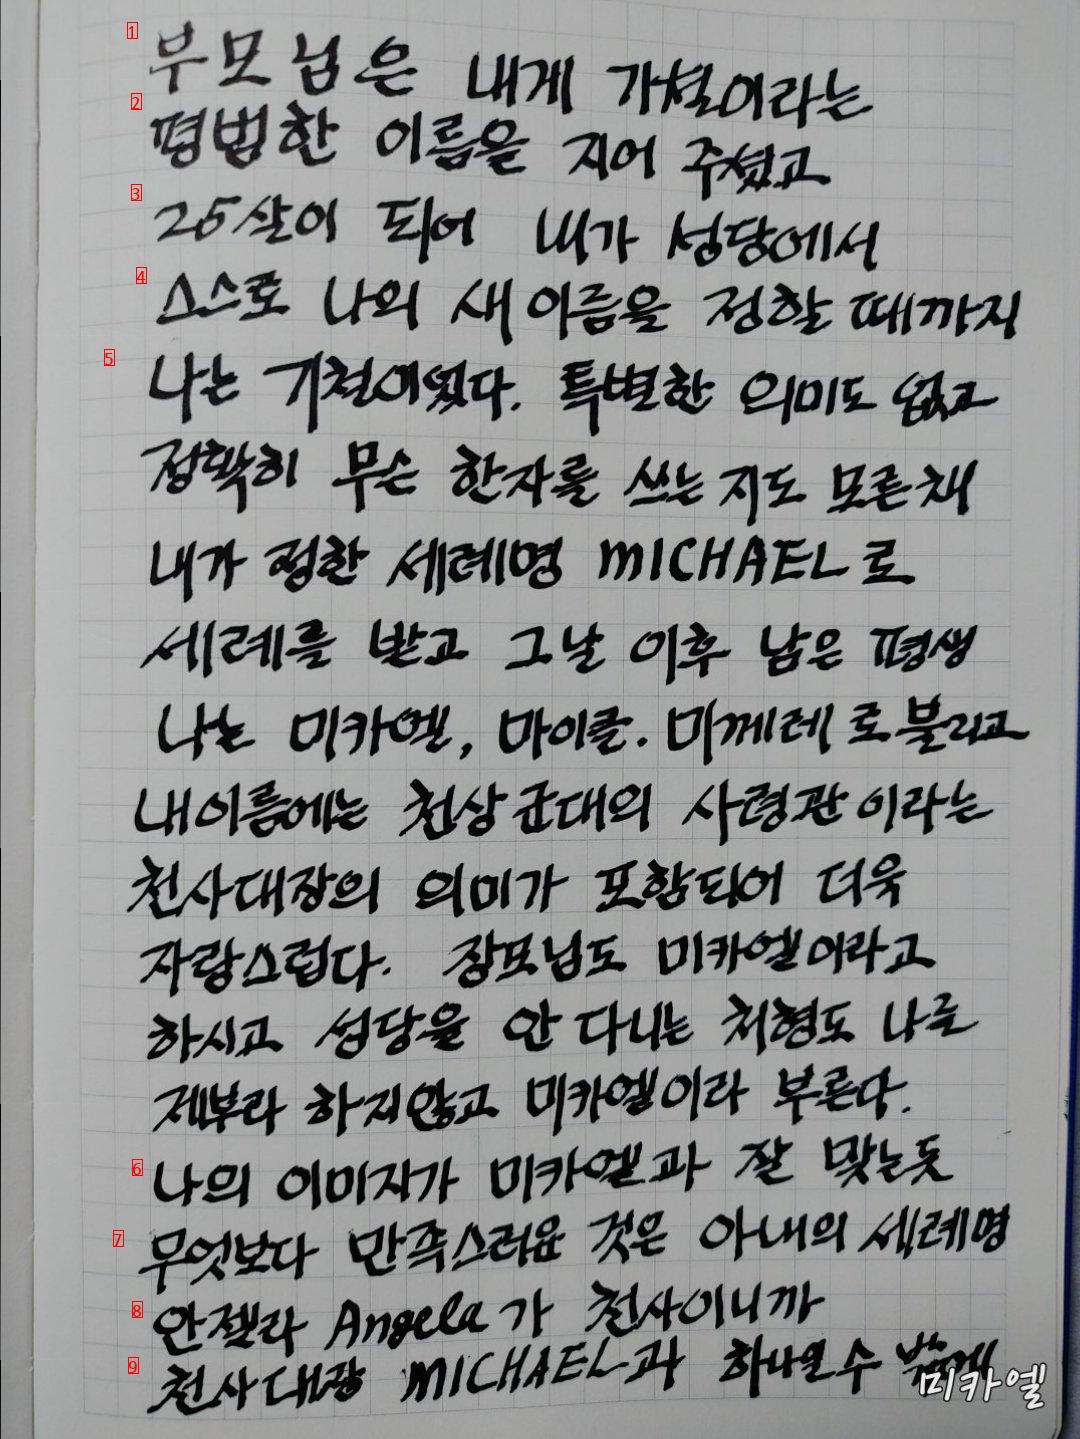 부모님은 내게 기철이라는
평범한 이름을 지어 주셨고
25살이 되어 내가 성당에서
스스로 나의 새 이름을 정할 때까지
나는 기철이었다. 특별한 의미도 없고
정확히 무슨 한자를 쓰는지도 모른채
내가 정한 세례명 MICHAEL로
세례를 받고 그날 이후 남은 평생
나는 미카엘, 마이클. 미께레로 불리고
내이름에는 천상군대의 사령관이라는
천사대장의 의미가 포함되어 더욱
자랑스럽다. 장모님도 미카엘이라고
하시고 성당을 안 다니는 처형도 나를
제부라 하지않고 미카엘이라 부른다.
나의 이미지가 미카엘과 잘 맞는듯
무엇보다 만족스러운 것은 아내의 세례명
안젤라 Angela가 천사이니까
천사대장 MICHAEL과 하나일수 밖에
미카엘
1
2
3
4
5
6
7
8
9